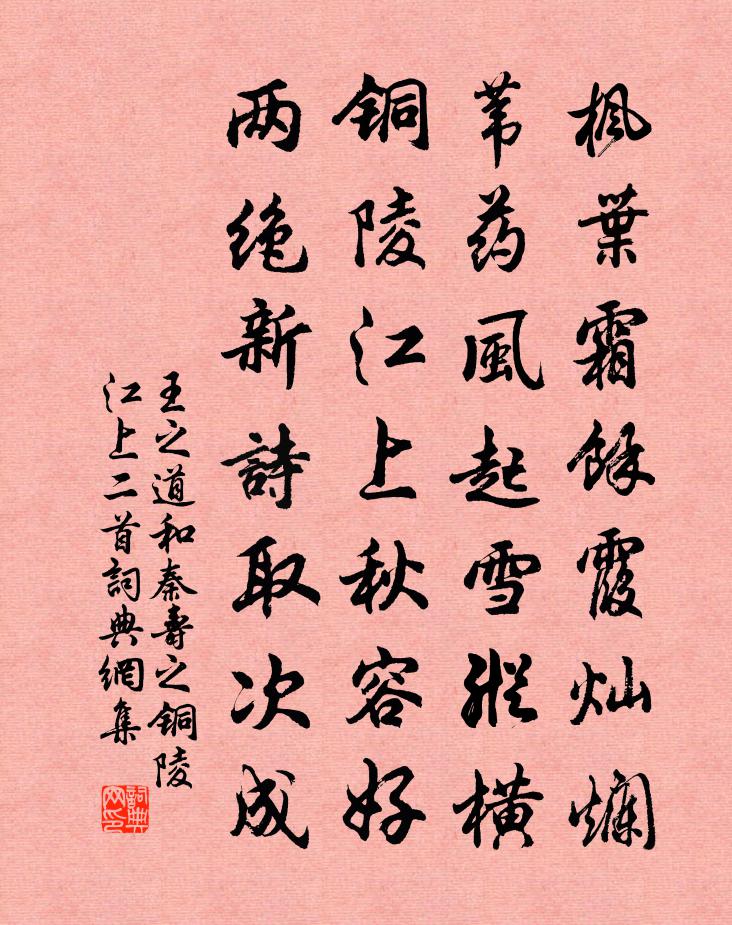 枫葉霜餘霞灿爛
苇药風起雪縱橫
铜陵江上秋容好
两绝新詩取次成
王之道和秦壽之铜陵
江上二首詞典網集
詞典网印